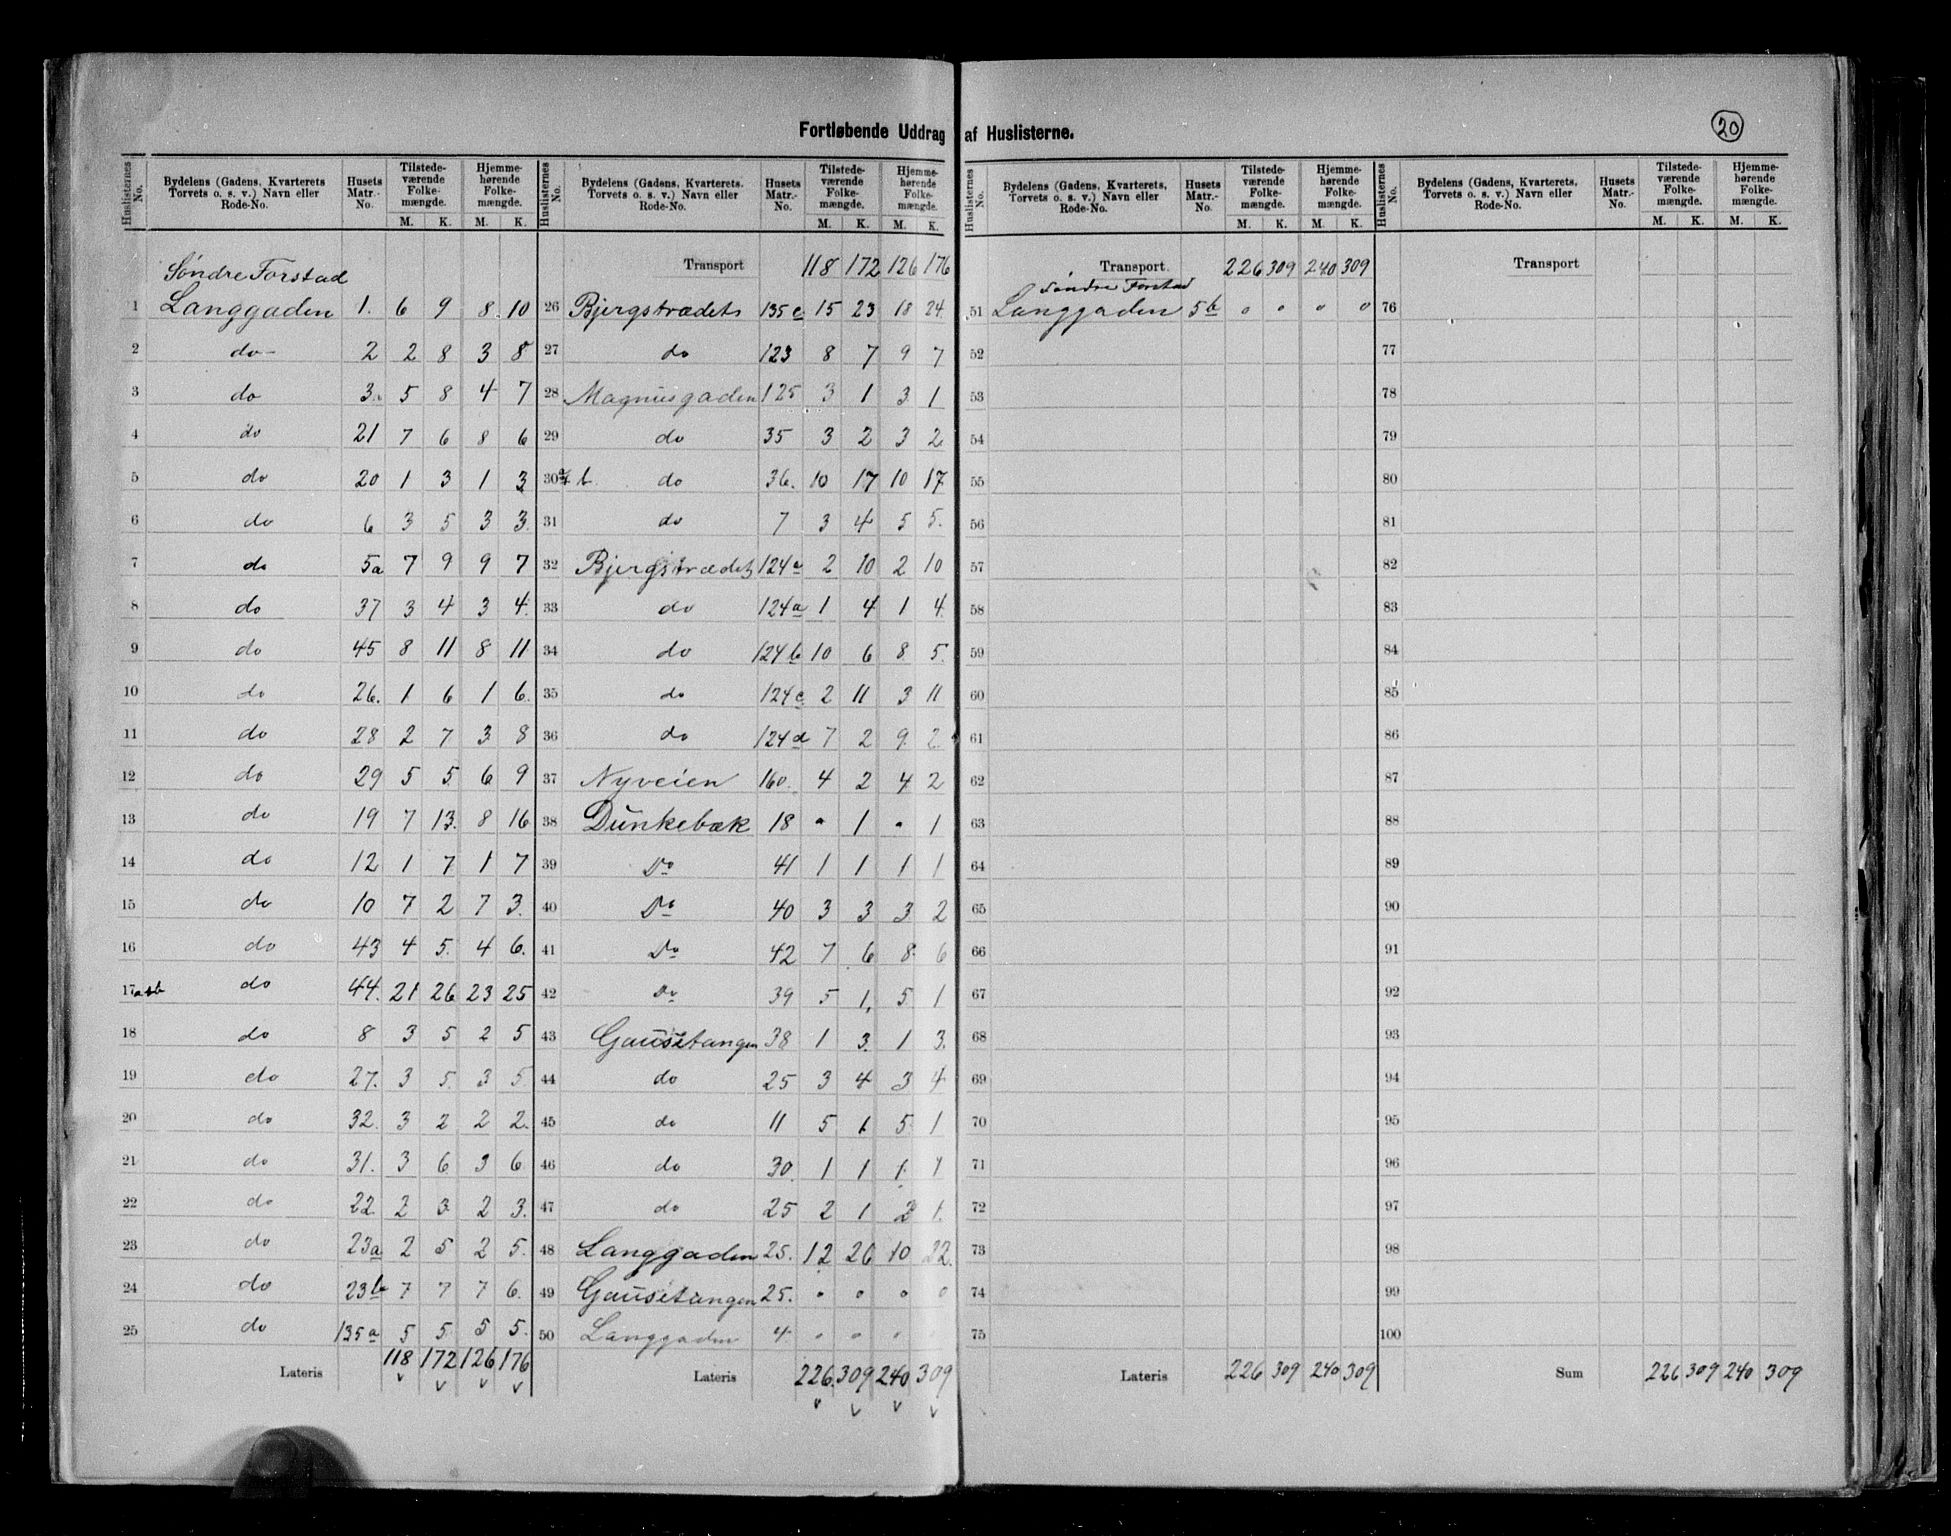 Fortløbende Uddrag af Huslisterne.
20
Huslisternes No. Bydelens (Gadens, Kvarterets Torvets o. s. v.) Navn eller Rode-No. Husets Matr.-No. Tilstede-værende Folke-mængde. M. K. Hjemme-hørende Folke-mængde. M. K.
Søndre Forstad
1 Langgaden 1. 6 9 8 10
2 do 2 2 8 3 8
3 do 3. 5 8 4 7
4 do 21 7 6 8 6
5 do 20 1 3 1 3
6 do 6 3 5 3 3.
7 do 5a 7 9 9 7
8 do 37 3 4 3 4.
9 do 45 8 11 8 11
10 do 26. 1 6 1 6.
11 do 28 2 7 3 8
12 do 29 5 5 6 9
13 do 19 7 13. 8 16
14 do 12 1 7 1 7
15 do 10 7 2 7 3.
16 do 43 4 5. 4 6.
17 a+b do 44. 21 26 23 25
18 do 8 3 5 2 5
19 do 27. 3 5. 3 5
20 do 32. 3 2 2 2.
21 do 31. 3 6 3 6
22 do 22 2 3 2 3.
23 do 23a 2 5 2 5.
24 do 23b 7 7 7 6.
25 do 135a 5 5 5 5.
Lateris 118 172 126 176
Huslisternes No. Bydelens (Gadens, Kvarterets, Torvets o. s. v.) Navn eller Rode-No. Husets Matr.-No. Tilstede-værende Folke-mængde. M. K. Hjemme-hørende Folke-mængde. M. K.
Transport 118 172 126 176
26 Bjergstrædets 135c 15 23 18 24.
27 do 123 8 7 9 7
28 Magnusgaden 125 3 1 3 1
29 do 35 3 2 3 2
30 a+b. do 36. 10 17 10 17.
31 do 7 3 4 5 5.
32 Bjergstrædet 124a 2 10 2 10
33 do 124a 1 4 1 4.
34 do 124b 10 6 8 5.
35 do 124c 2 11 3 11
36 do 124d 7 2 9. 2.
37 Nyveien 160. 4 2 4 2
38 Dunkebæk 18 " 1 " 1
39 Do 41 1 1 1 1
40 Do 40 3 3 3 2
41 Do 42 7 6 8. 6
42 Do 39 5 1. 5 1
43 Gausetangen 38 1 3. 1 3.
44 do 25 3 4 3 4
45 do 11 5 1 5 1
46 do 30 1 1 1 1
47 do 25 2 1 2 1.
48 Langgaden 25. 12 26 10 22.
49 Gausetangen 25. " " " "
50 Langgaden 4. " " "
Lateris 226. 309 240 309
Huslisternes No. Bydelens (Gadens, Kvarterets, Torvets o. s. v.) Navn eller Rode-No. Husets Matr.-No. Tilstede-værende Folke-mængde. M. K. Hjemme-hørende Folke-mængde. M. K.
Transport 226 309 240 309
Søndre Forstad
51 Langgaden 5b " " " "
52
53
54
55
56
57
58
59
60
61
62
63
64
65
66
67
68
69
70
71
72
73
74
75
Lateris 226 309 240 309
Huslisternes No. Bydelens (Gadens, Kvarterets, Torvets o. s. v.) Navn eller Rode-No. Husets Matr.-No. Tilstede-værende Folke-mængde. M. K. Hjemme-hørende Folke-mængde. M. K.
Transport
76
77
78
79
80
81
82
83
84
85
86
87
88
89
90
91
92
93
94
95
96
97
98
99
100
Sum 226 309 240 309